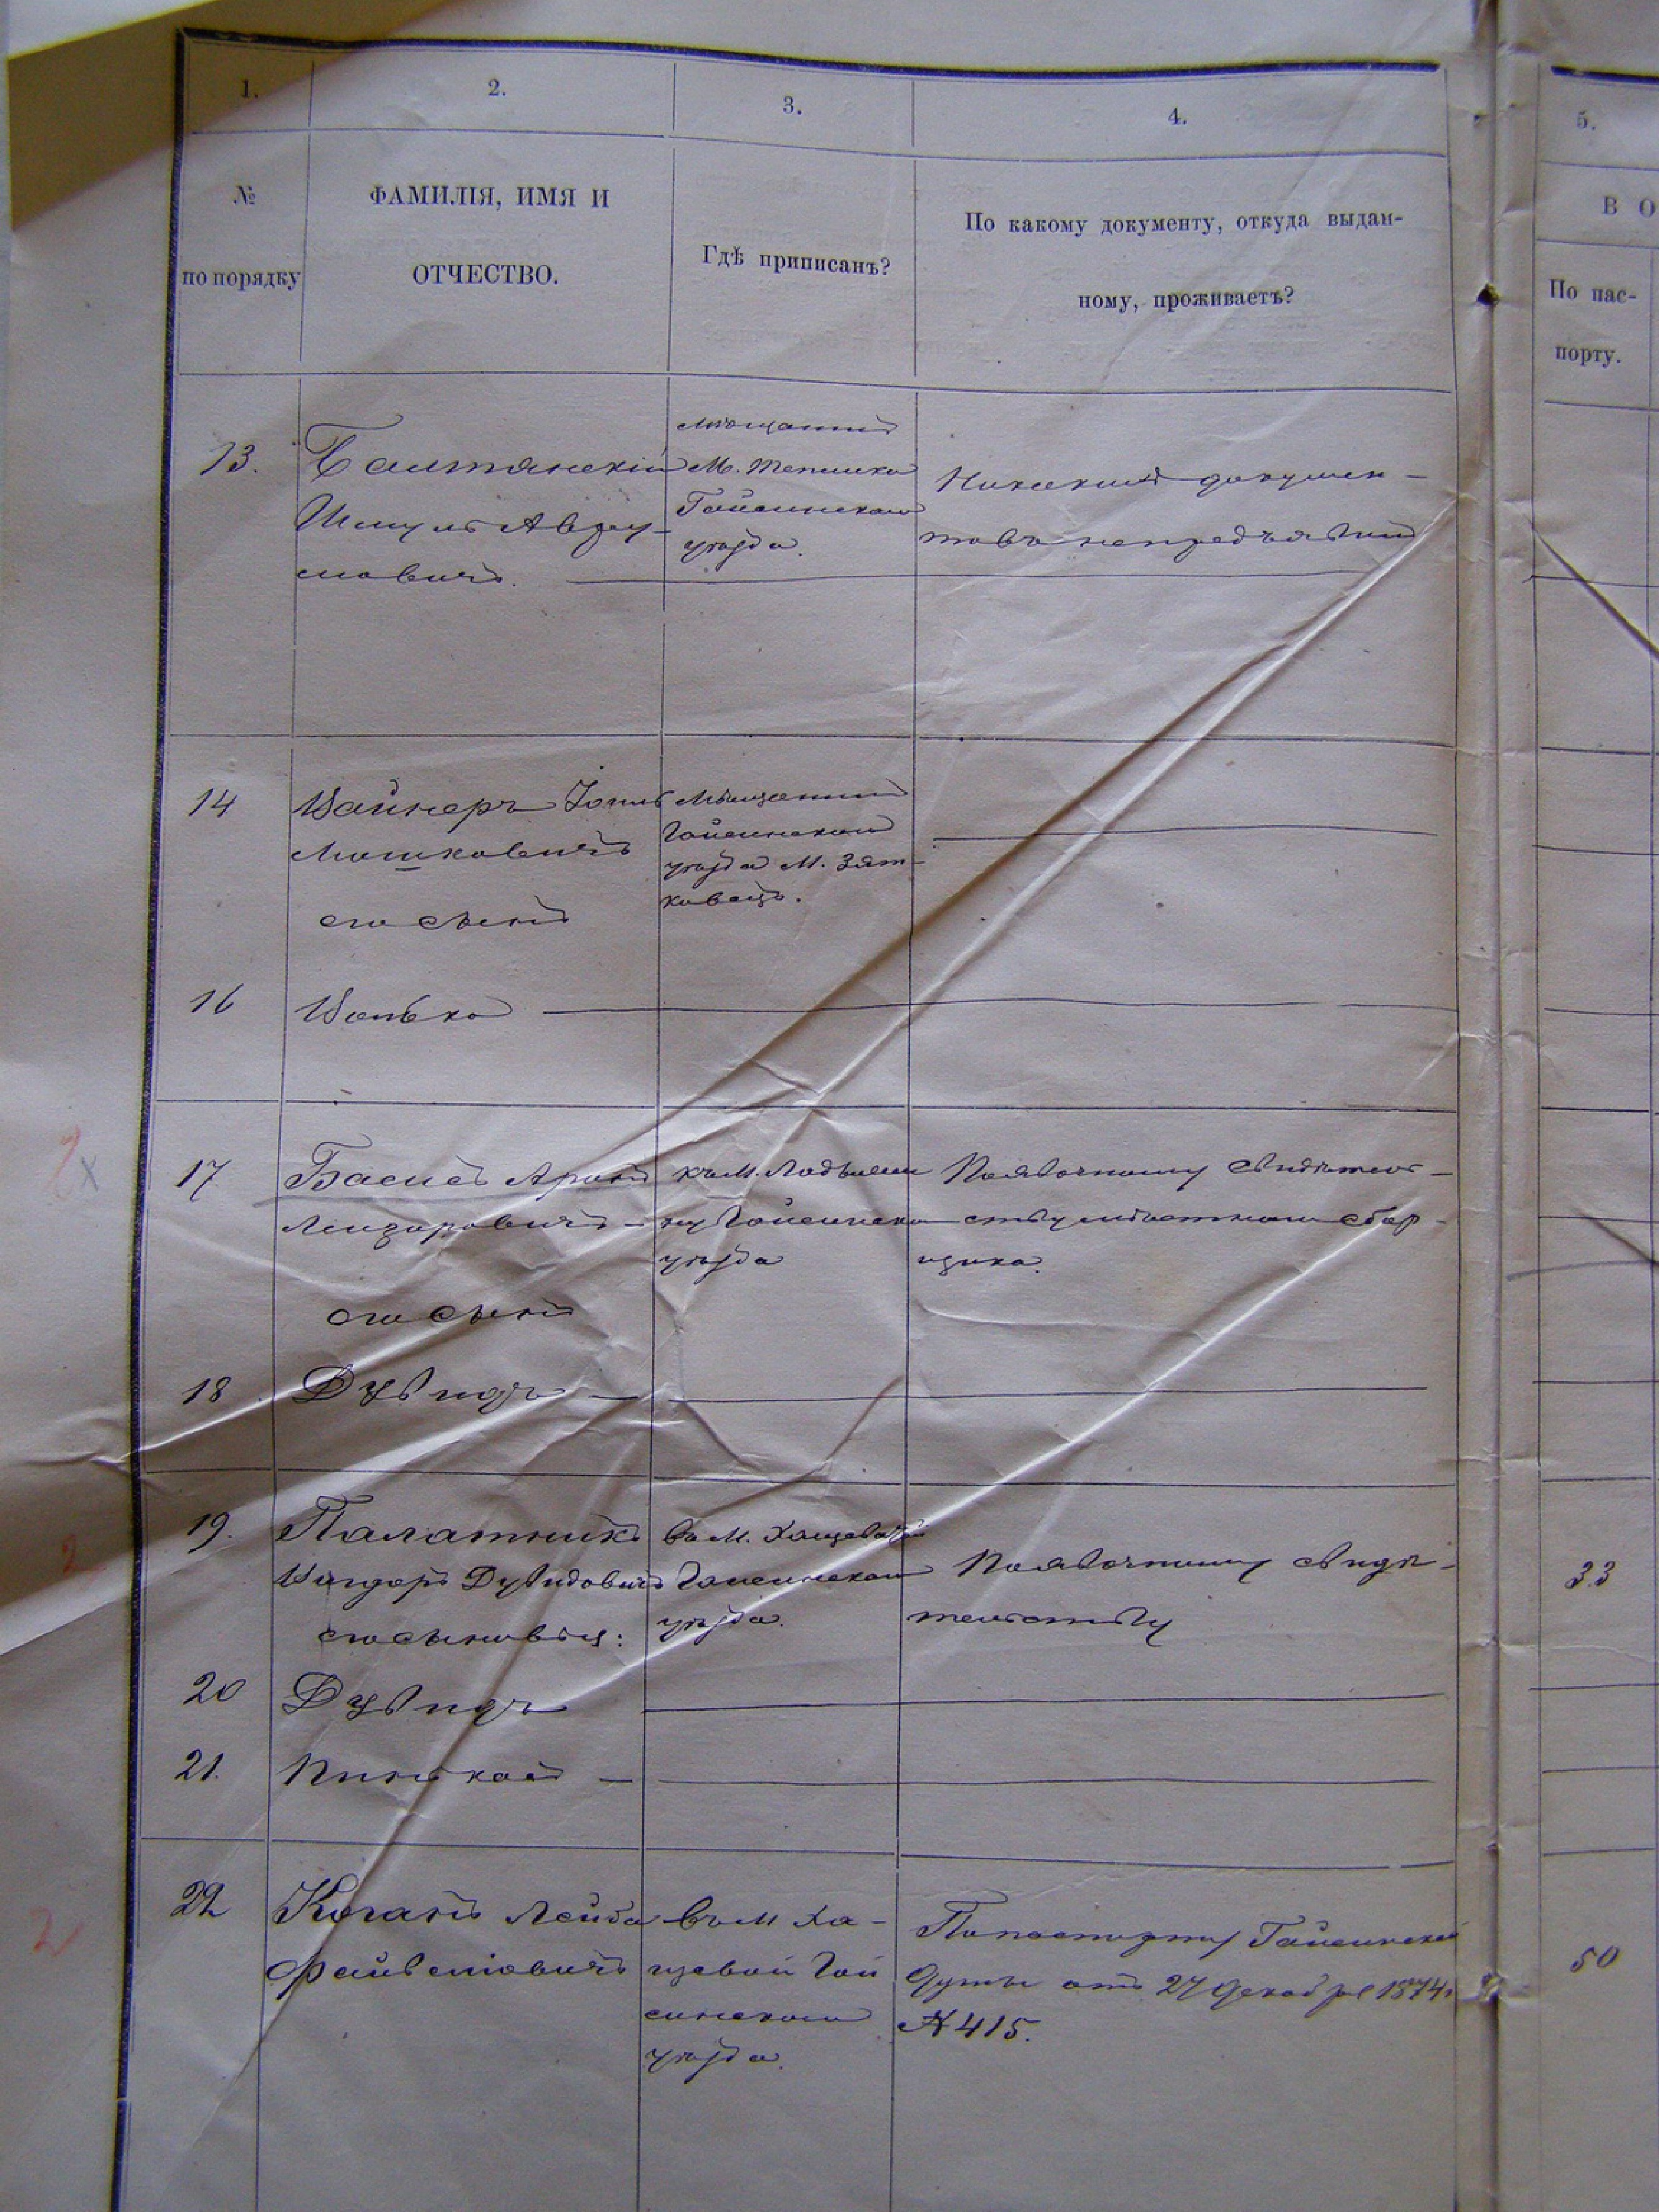 1.
2.
3.
4.
5.
№
по порядку
ФАМИЛІЯ, ИМЯ И
ОТЧЕСТВО.
Гдѣ приписанъ?
По какому документу, откуда выдан-
ному, проживаетъ?
В О
По пас-
порту.
13.
Балтянскій
Шмуль Авру-
мовичъ.
мѣщанинъ
М. Теплика
Гайсинскаго
уѣзда.
Никакихъ докумен-
товъ непредъявилъ
14
Вайнеръ Іопъ
Мошковичъ
его сынъ
Мѣщанинъ
Гайсинскаго
уѣзда М. Зят-
ковецъ.
16
17
Басисъ Аронъ
Лейзоровичъ
его сынъ
къ М. Ладыжи
ну Гайсинска
уѣзда
Появочному свидѣтель-
ству мѣстнаго сбор-
щика.
18
Дувидъ
19.
Палатникъ
Вигдоръ Дувидовичъ
его сыновья:
въ М. Хащеватой
Гайсинскаго
уѣзда.
Появочному свидѣ-
тельству
33
20
Дувидъ
21.
Пинькасъ
22
Коганъ Лейба
Файвелювичъ
въ М Ха-
щевой Гай
синскаго
уѣзда.
По паспорту Гайсинской
Думы отъ 27 Декабря 1874 г
№ 415.
50